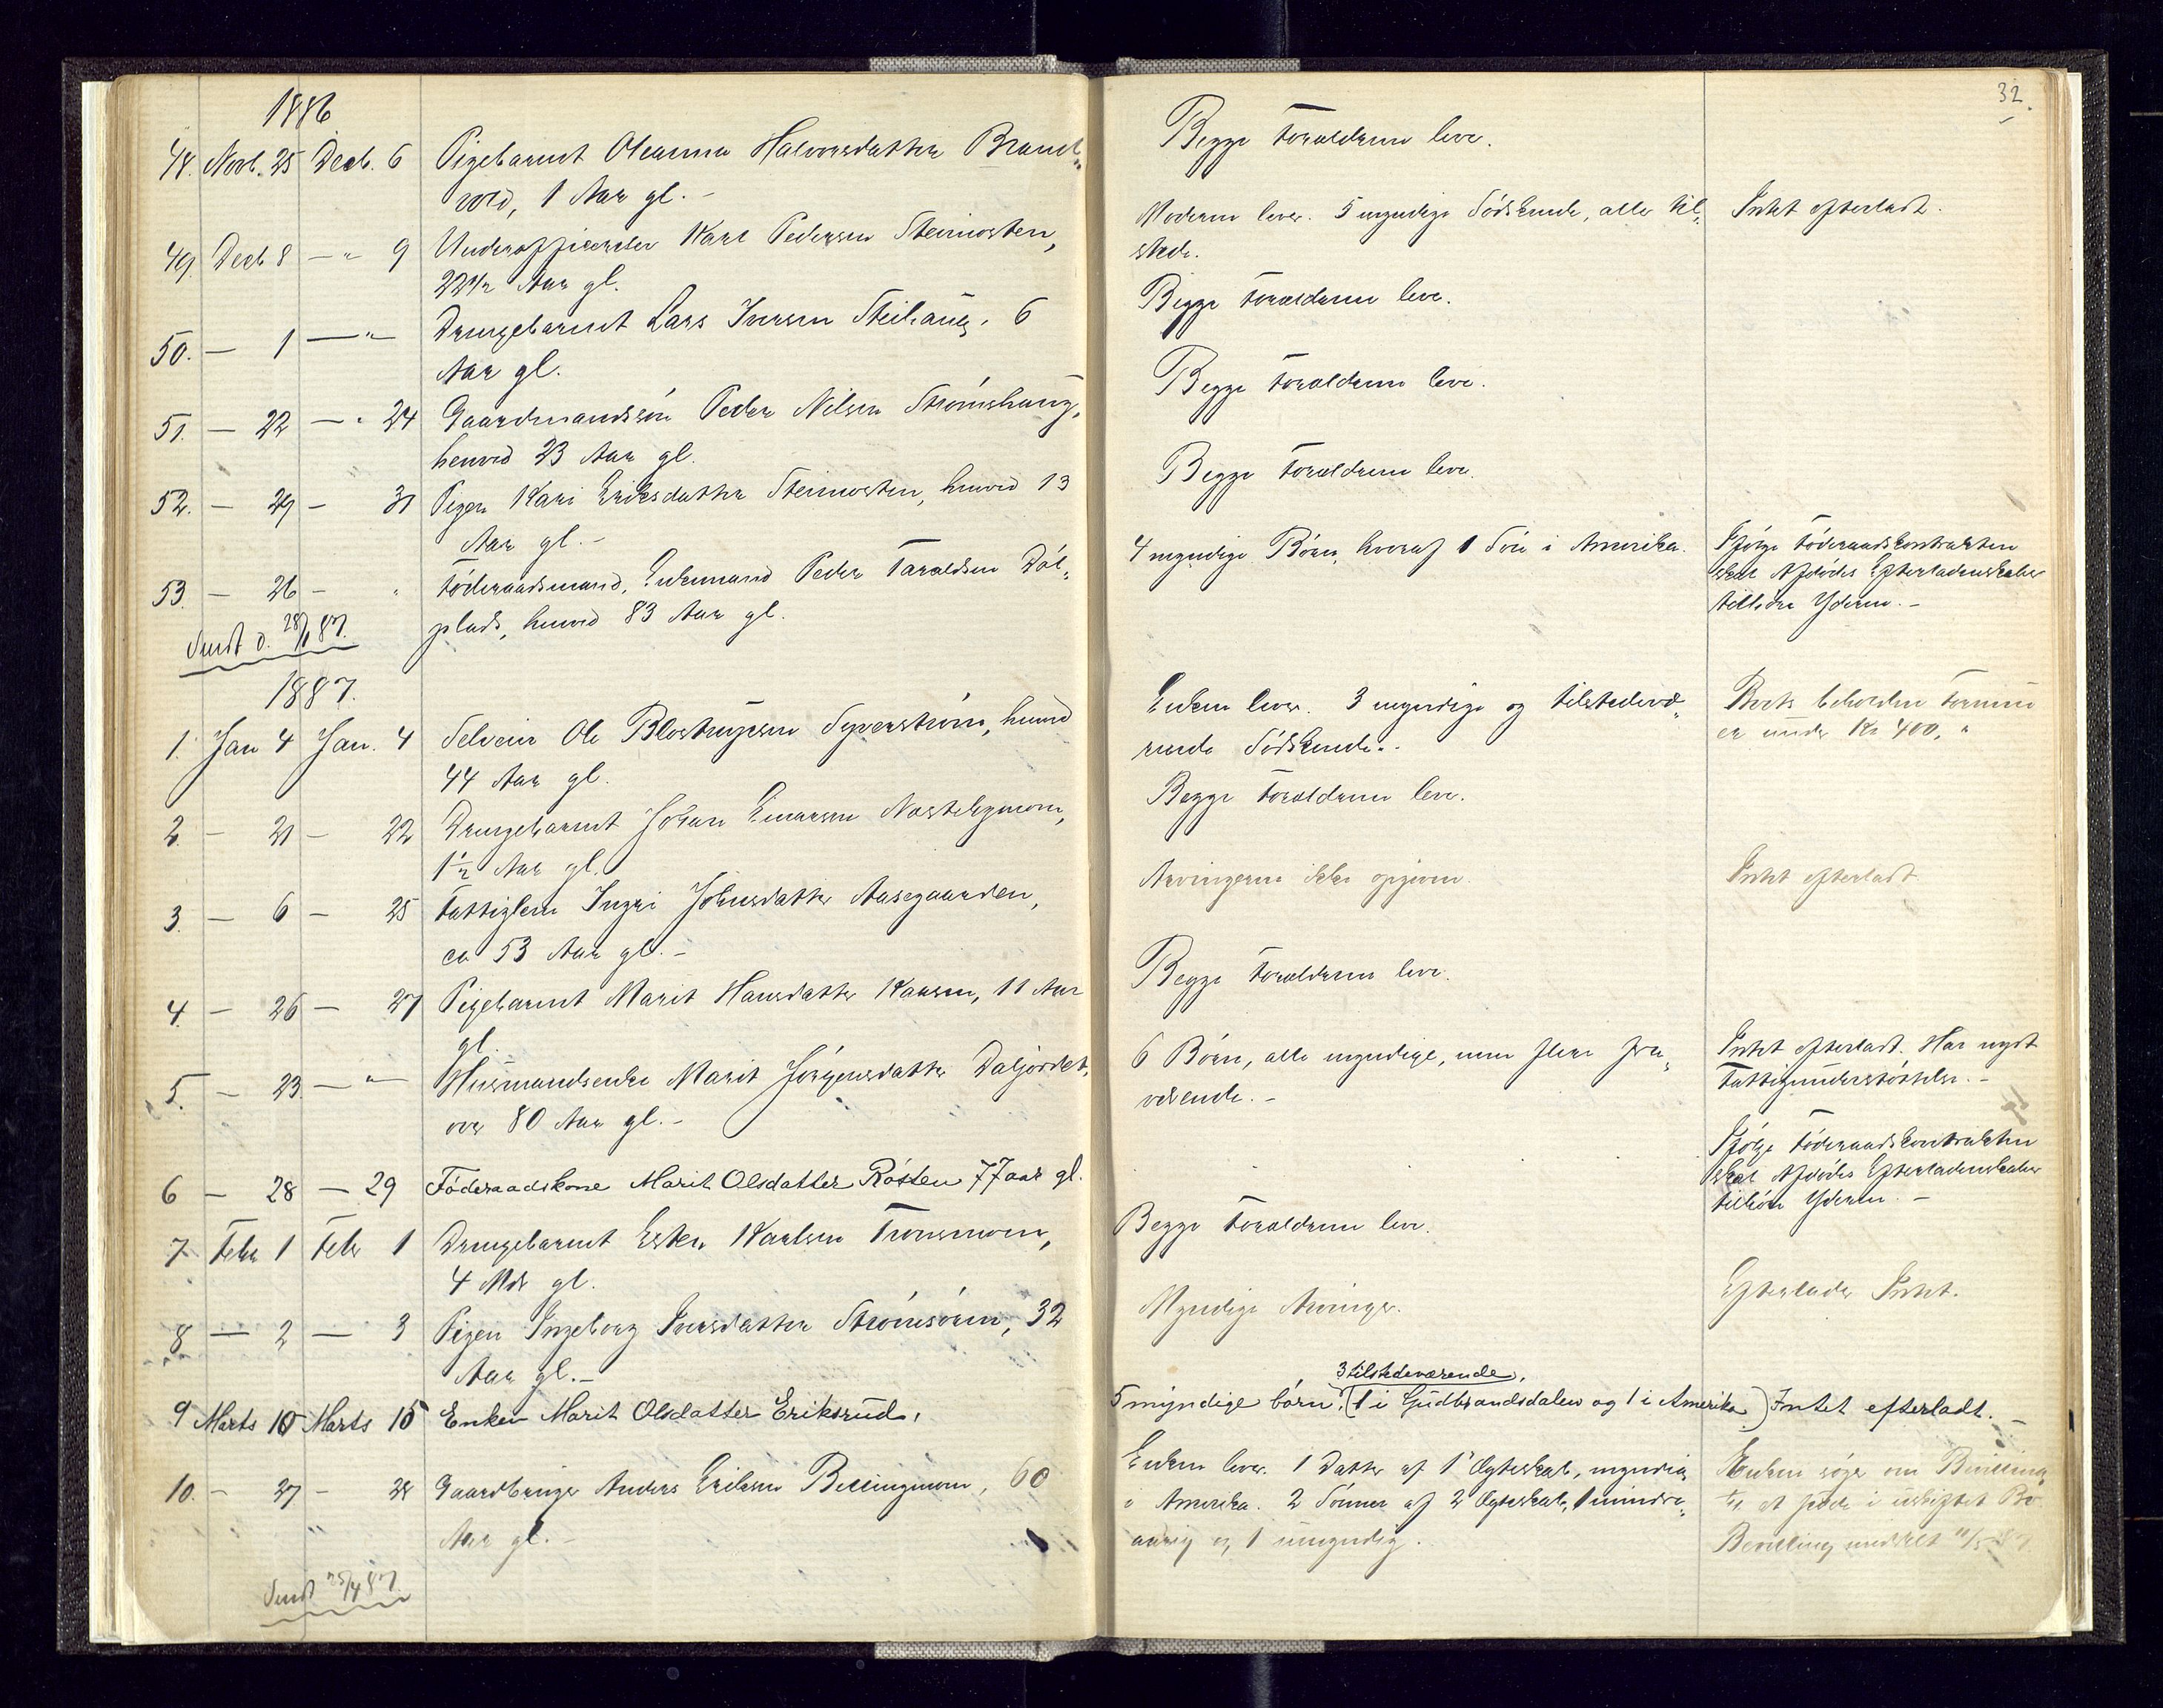 32.
1886
48. Novb. 25 Decb. 6 Pigebarnet Oleanna Halvorsdatter Brand-
vold, 1 Aar gl. -
Begge Forældrene leve.
49 Decb 8 - " 9 Underofficerselev Karl Pedersen Steimosten,
22 1/2 Aar gl.
Moderen lever. 5 myndige Södskende, alle til-
stede.
Intet efterladt.
50. - 1 - " Drengebarnet Lars Iversen Steihaug, 6
Aar gl.
Begge Forældrene leve.
51. - 22 - " 24 Gaardmandssön Peder Nilsen Strömshaug,
henved 23 Aar gl.
Begge Forældrene leve.
52. - 29 - 31 Pigen Kari Eriksdatter Steimosten, henved 13
Aar gl. -
Begge Forældrene leve.
53. - 26 - " Föderaadsmand, Enkemand Peder Taraldsen Döl-
plads, henved 83 Aar gl.
4 myndige Börn, hvoraf 1 Sön i Amerika.
Ifölge Föderaadskontrakten
skal Afdödes Efterladenskaber
tilhöre Yderen. -
Sendt d. 28/1 87.
1887.
1. Jan 4 Jan. 4 Selveier Ole Syverström, henved
44 Aar gl.
Enken lever. 3 myndige og tilstedevæ-
rende Södskende. -
Boets beholdne Formue
er under Kr 400, "
2. - 21 - 22 Drengebarnet Johan Einarsen
1 1/2 Aar gl.
Begge Forældrene leve.
3. - 6 - 25 Fattiglem Ingri Johnsdatter Aasegaarden,
ca 53 Aar gl. -
Arvingerne ikke opgivne.
Intet efterladt
4. - 26 - 27 Pigebarnet Marit Hansdatter Kaasen, 11 Aar
gl.
Begge Forældrene leve.
5. - 23 - " Husmandsenke Marit Jörgensdatter Daljordet,
over 80 Aar gl. -
6 Börn, alle myndige, men flere fra-
værende. -
Intet efterladt. Har nydt
Fattigunderstöttelse. -
6 - 28 - 29 Föderaadskone Marit Olsdatter Rösten 77 aar gl.
Ifölge Föderaadskontrakten
skal Afdödes Efterladenskaber
tilhöre Yderen. -
7 Febr 1 Febr 1 Drengebarnet Esten Karlsen Tronsmoen,
4 Mdr gl.
Begge Forældrene leve.
8 - 2 - 3 Pigen Ingeborg Iversdatter Strömsören, 32
Aar gl. -
Myndige Arvinger.
Efterlader Intet.
3 tilstedeværende,
9 Marts 10 Marts 15 Enken Marit Olsdatter Eriksrud.
5 myndige börn, (1 i Gudbrandsdalen og 1 i Amerika) Intet efterladt. -
10. - 27 - 28 Gaardbruger Anders Eriksen Bellingmoen, 60
Aar gl. -
Enken lever. 1 Datter af 1' Ægteskab, myndig
i Amerika. 2 Sönner af 2' Ægteskab, 1 mindre-
aarig og 1 umyndig.
Enken söger om Bevilling
til at sidde i uskiftet Bo.
Bevilling meddelt 11/5 87
Sendt 25/4 87.